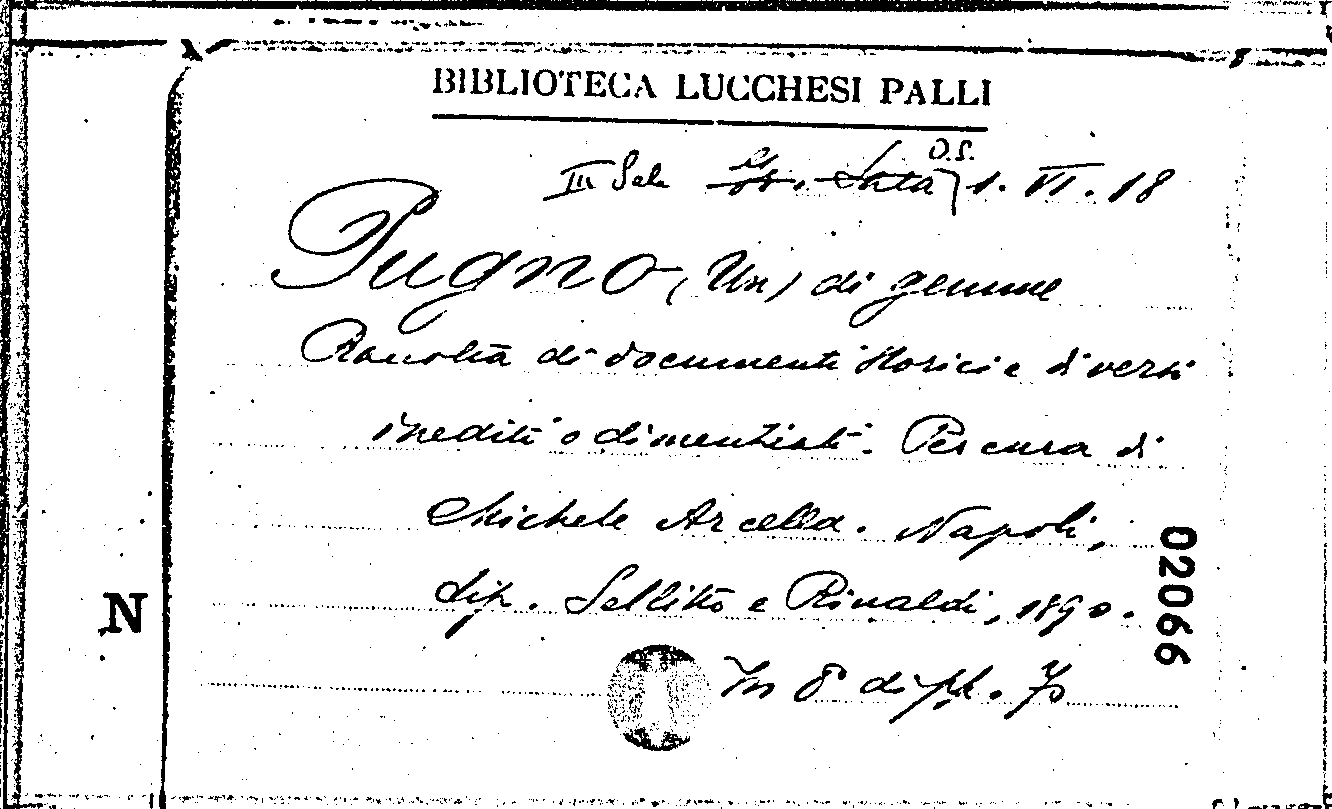 BIBLIOTECA LUCCHESI PALLI
III Sala D.S. 1. VI. 18
Pugno (Un) di gemme
Raccolta di documenti storici e di versi
inediti o dimenticati. Per cura di
Michele Arcella. Napoli,
tip. Sellitto e Rinaldi, 1890.
In 8° di pp. 70
02066
N